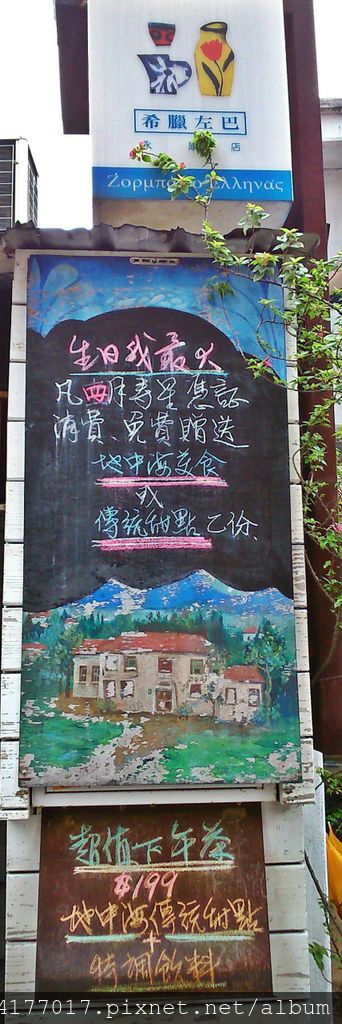 希臘左巴
永康店
Ζορμπας ο Ελληνας
生日我最大
凡四月壽星憑証
消費、免費贈送
地中海美食
或
傳統甜點乙份、
超值下午茶
$199
地中海傳統甜點
+
特調飲料
4177017.pixnet.net/album